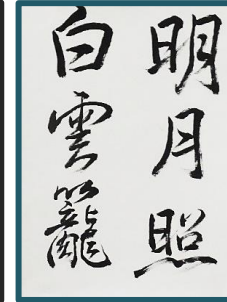 明月照
白雲籠